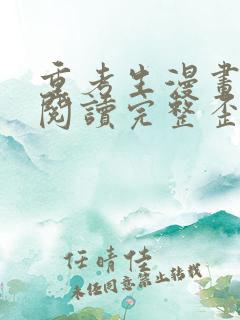 重考生漫畫
閱讀完整歪
任晴佳
未经同意禁止转载